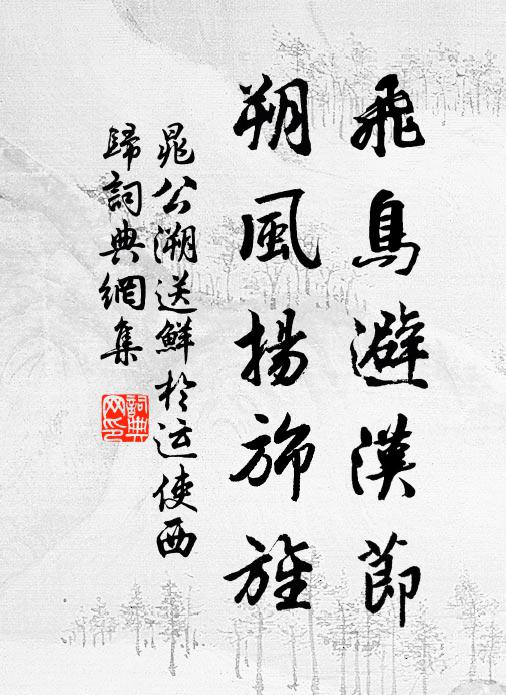 飛鳥避漢節
朔風揚斾旌
晁公溯送鮮于运使西
歸詞典網集
詞典
网印